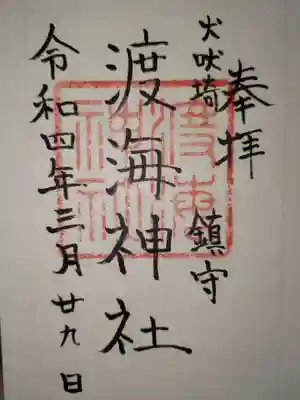 奉拝
犬吠埼鎮守
渡海神社
令和四年三月廿九日